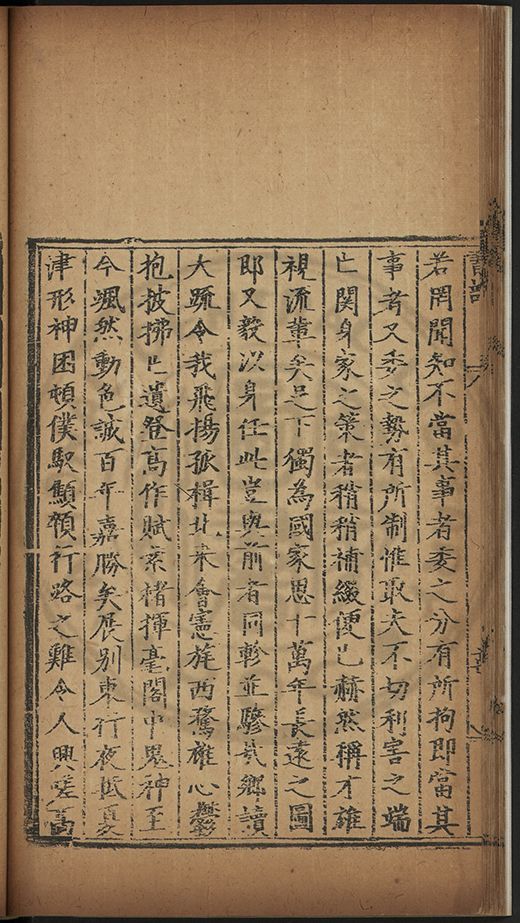 若罔聞知不當其事者委之分有所拘即當其
事者又委之勢有所制惟取夫不切利害之端
亡関身家之策者稍稍補綴便已赫然稱才雄
視流軰矣足下獨為國家思十萬年長遠之圖
即又毅以身任此豈與前者同軫並驂哉鄉讀
大疏令我飛揚孤楫北来會憲旌西驁雄心鬱
抱披拂亡遺登高作賦素楮揮毫閣中鬼神至
今颯然動色誠百年嘉勝矣展別東行夜抵夏
津形神困頓僕馭顒頷行路之難令人興嗟